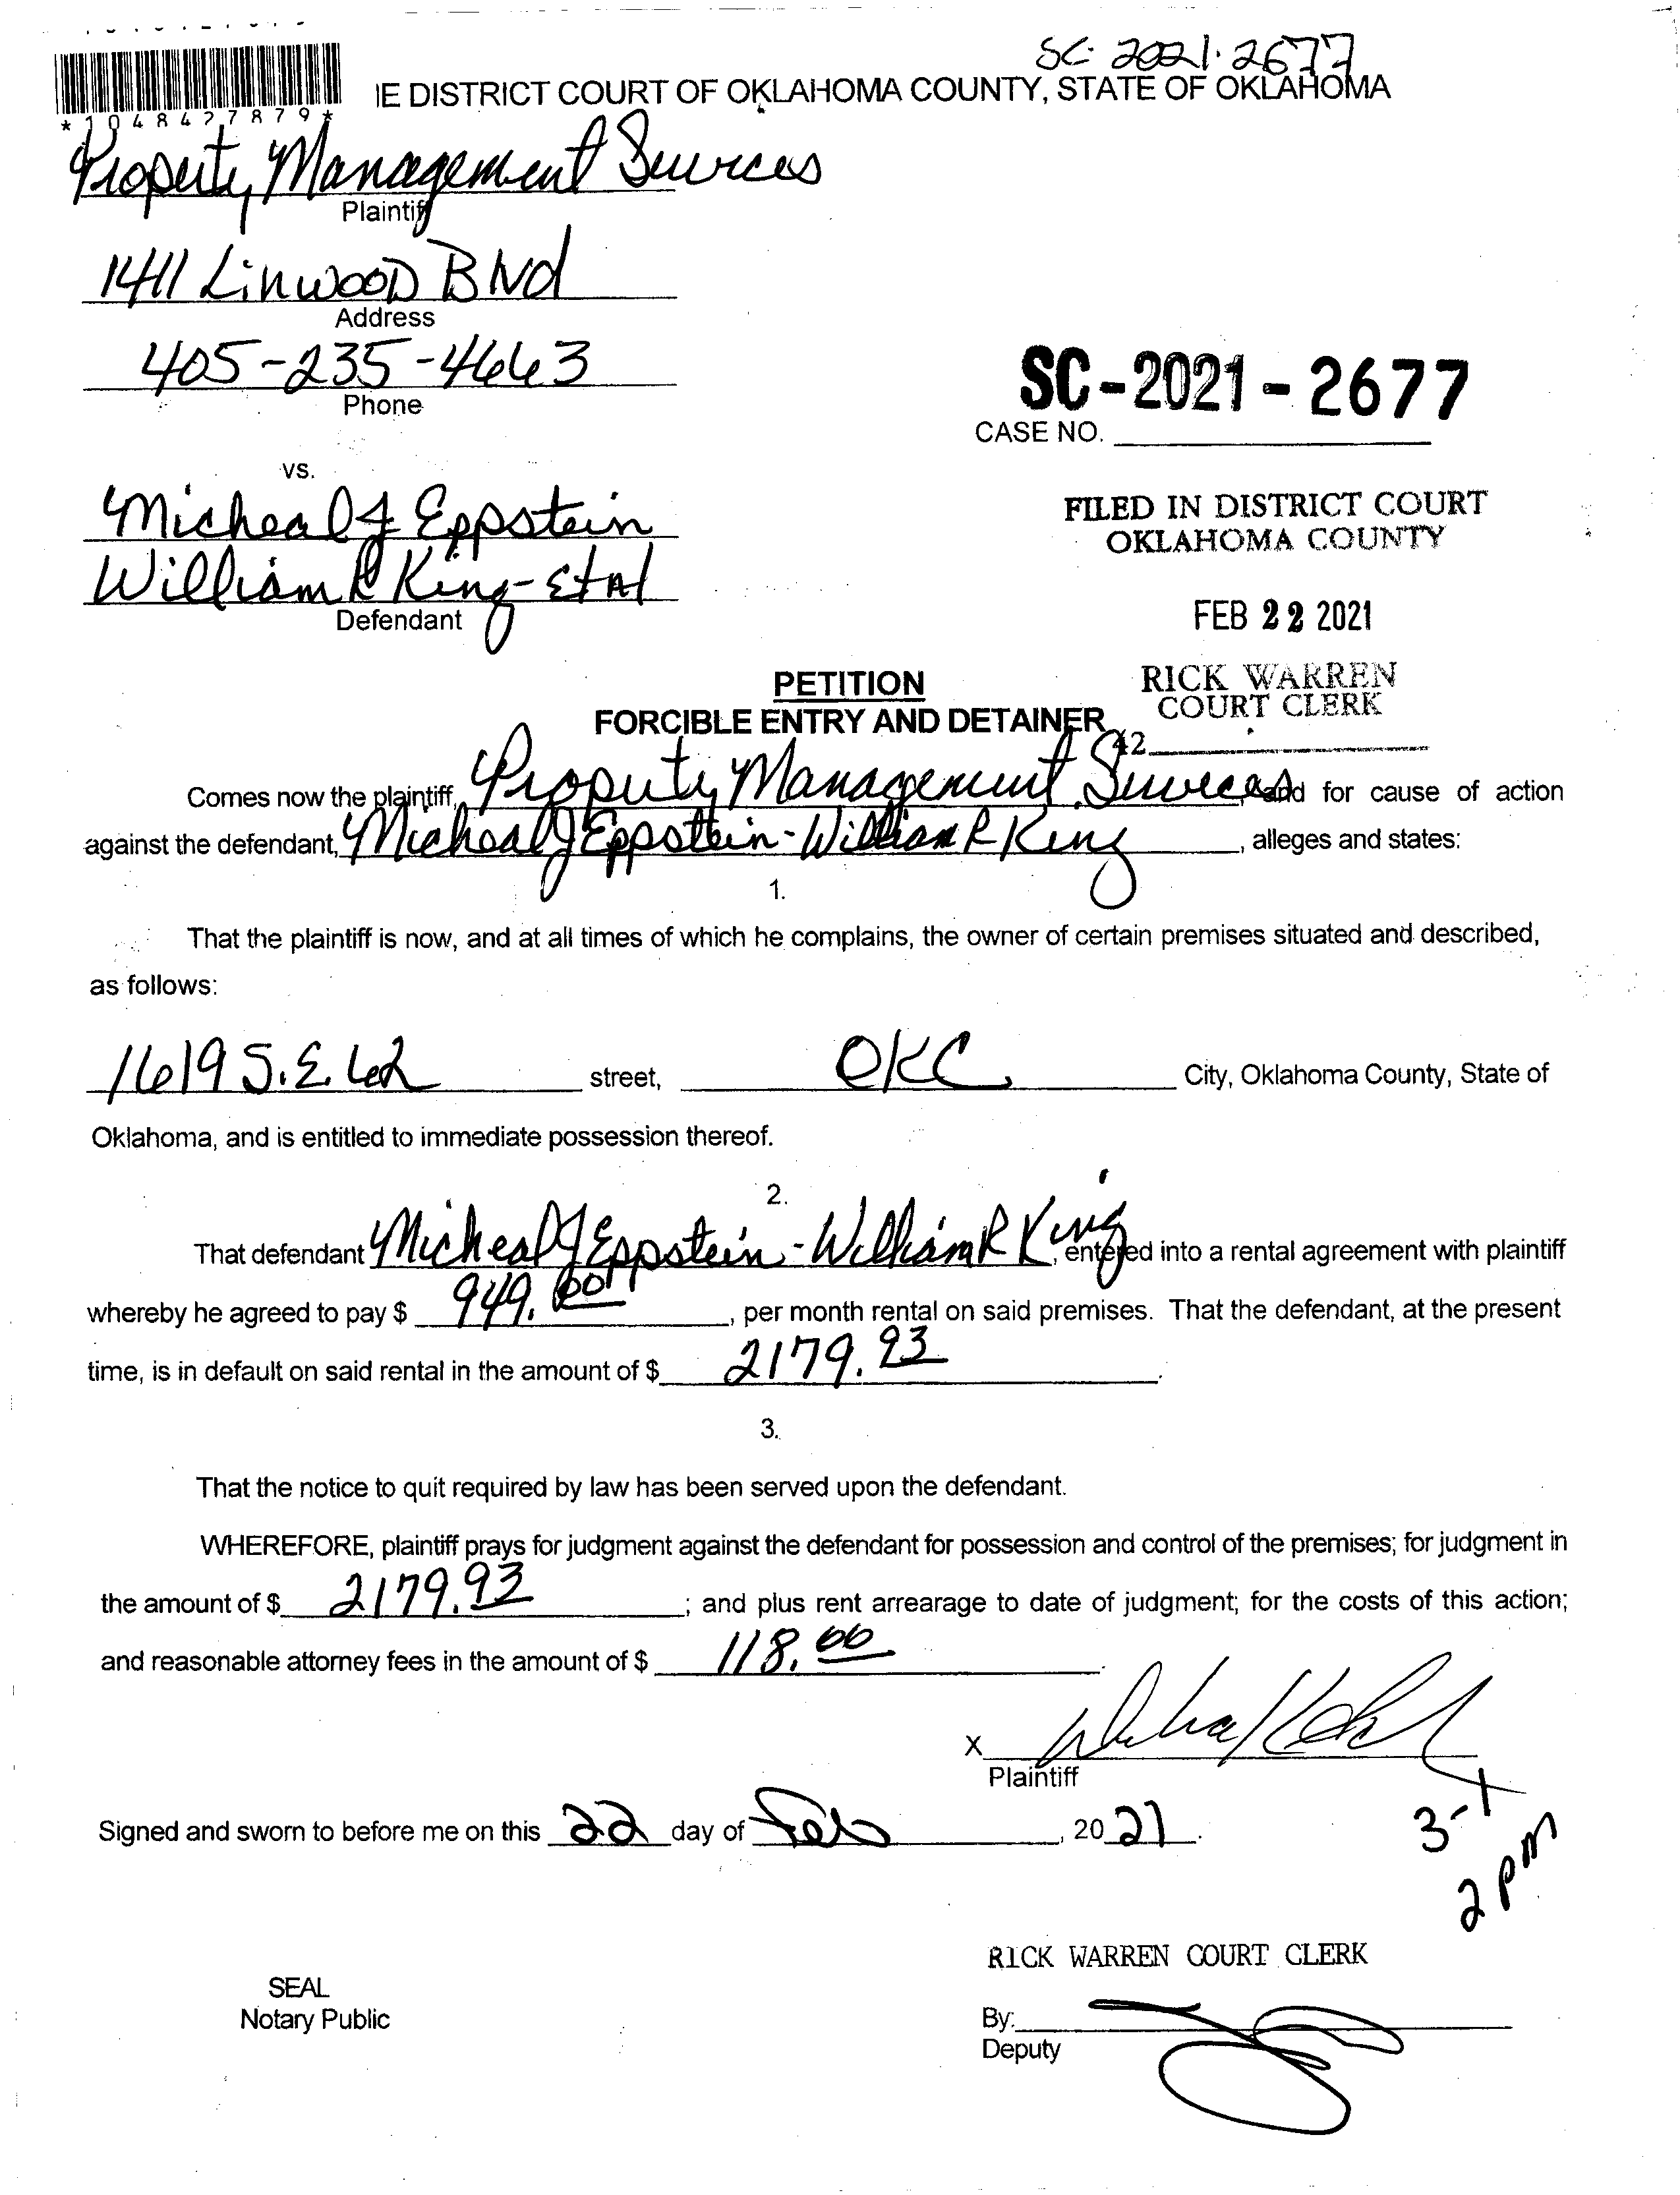 SC-2021-2677
IE DISTRICT COURT OF OKLAHOMA COUNTY, STATE OF OKLAHOMA
*1048427879*
Property Management Services
Plaintiff
1411 Linwood Blvd
Address
405-235-4663
Phone
SC-2021-2677
CASE NO.
vs.
Micheal J Eppstein
William R King-Et Al
Defendant
FILED IN DISTRICT COURT
OKLAHOMA COUNTY
FEB 22 2021
RICK WARREN
COURT CLERK
42
PETITION
FORCIBLE ENTRY AND DETAINER
Comes now the plaintiff, Property Management Services, and for cause of action
against the defendant, Micheal J Eppstein-William R King, alleges and states:
1.
That the plaintiff is now, and at all times of which he complains, the owner of certain premises situated and described,
as follows:
1619 S.E. 62 street, OKC City, Oklahoma County, State of
Oklahoma, and is entitled to immediate possession thereof.
2.
That defendant Micheal J Eppstein-William R King, entered into a rental agreement with plaintiff
whereby he agreed to pay $ 949.00, per month rental on said premises. That the defendant, at the present
time, is in default on said rental in the amount of $ 2179.93.
3.
That the notice to quit required by law has been served upon the defendant.
WHEREFORE, plaintiff prays for judgment against the defendant for possession and control of the premises; for judgment in
the amount of $ 2179.93; and plus rent arrearage to date of judgment; for the costs of this action;
and reasonable attorney fees in the amount of $ 118.00.
X
Plaintiff
Signed and sworn to before me on this 22 day of Feb, 2021.
3-1
2 pm
RICK WARREN COURT CLERK
SEAL
Notary Public
By:
Deputy